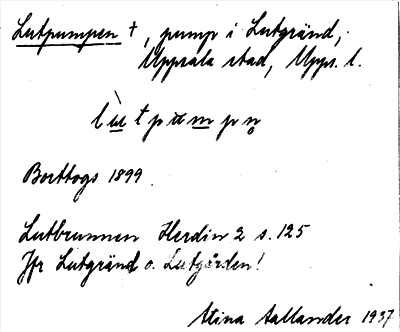 Lutpumpen †, pump i Lutgränd,
Uppsala stad, Upps. l.
Borttogs 1899
Lutbrunnen Herdin 2 s. 125
Jfr Lutgränd o. Lutgården!
Stina Aallander 1937